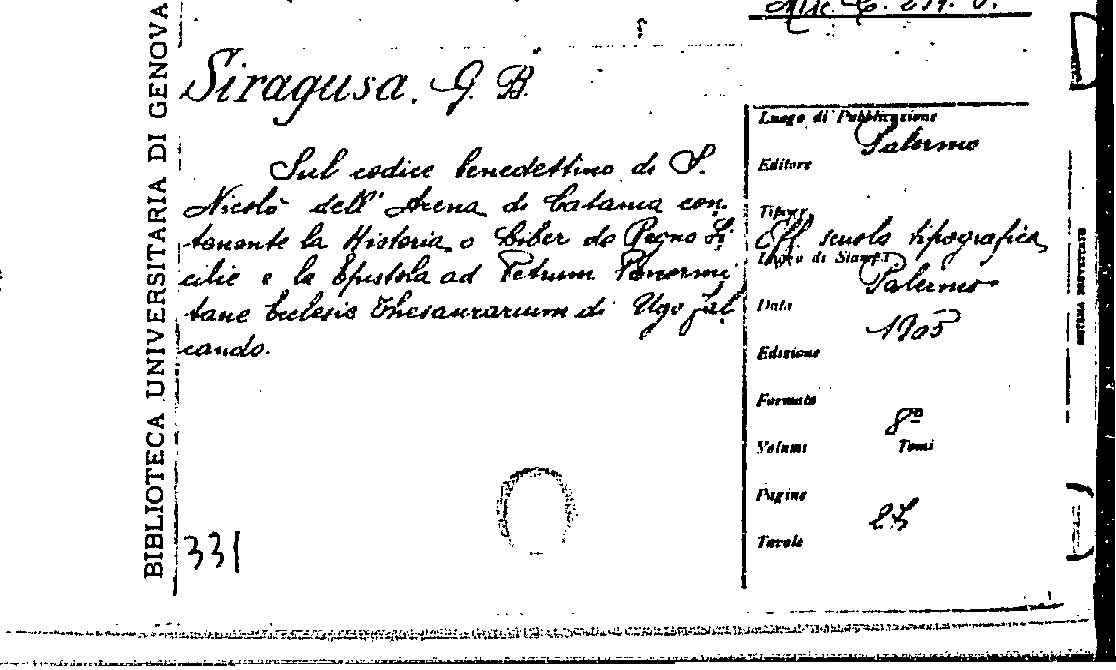 BIBLIOTECA UNIVERSITARIA DI GENOVA
Siragusa. G. B.
Sul codice benedettino di S.
Nicolò dell' Arena di Catania con-
tenente la Historia o Liber de Regno Si
cilie e la Epistola ad Petrum Panormi
tane Ecclesie Thesaurarium di Ugo Fal
cando.
331
Luogo di Pubblicazione
Palermo
Editore
Tipogr.
Off. scuola tipografica
Luogo di Stampa
Palermo
Data
1905
Edizione
Formato
8º
Volumi Tomi
Pagine
Tavole
SISTEMA BREVETTATO